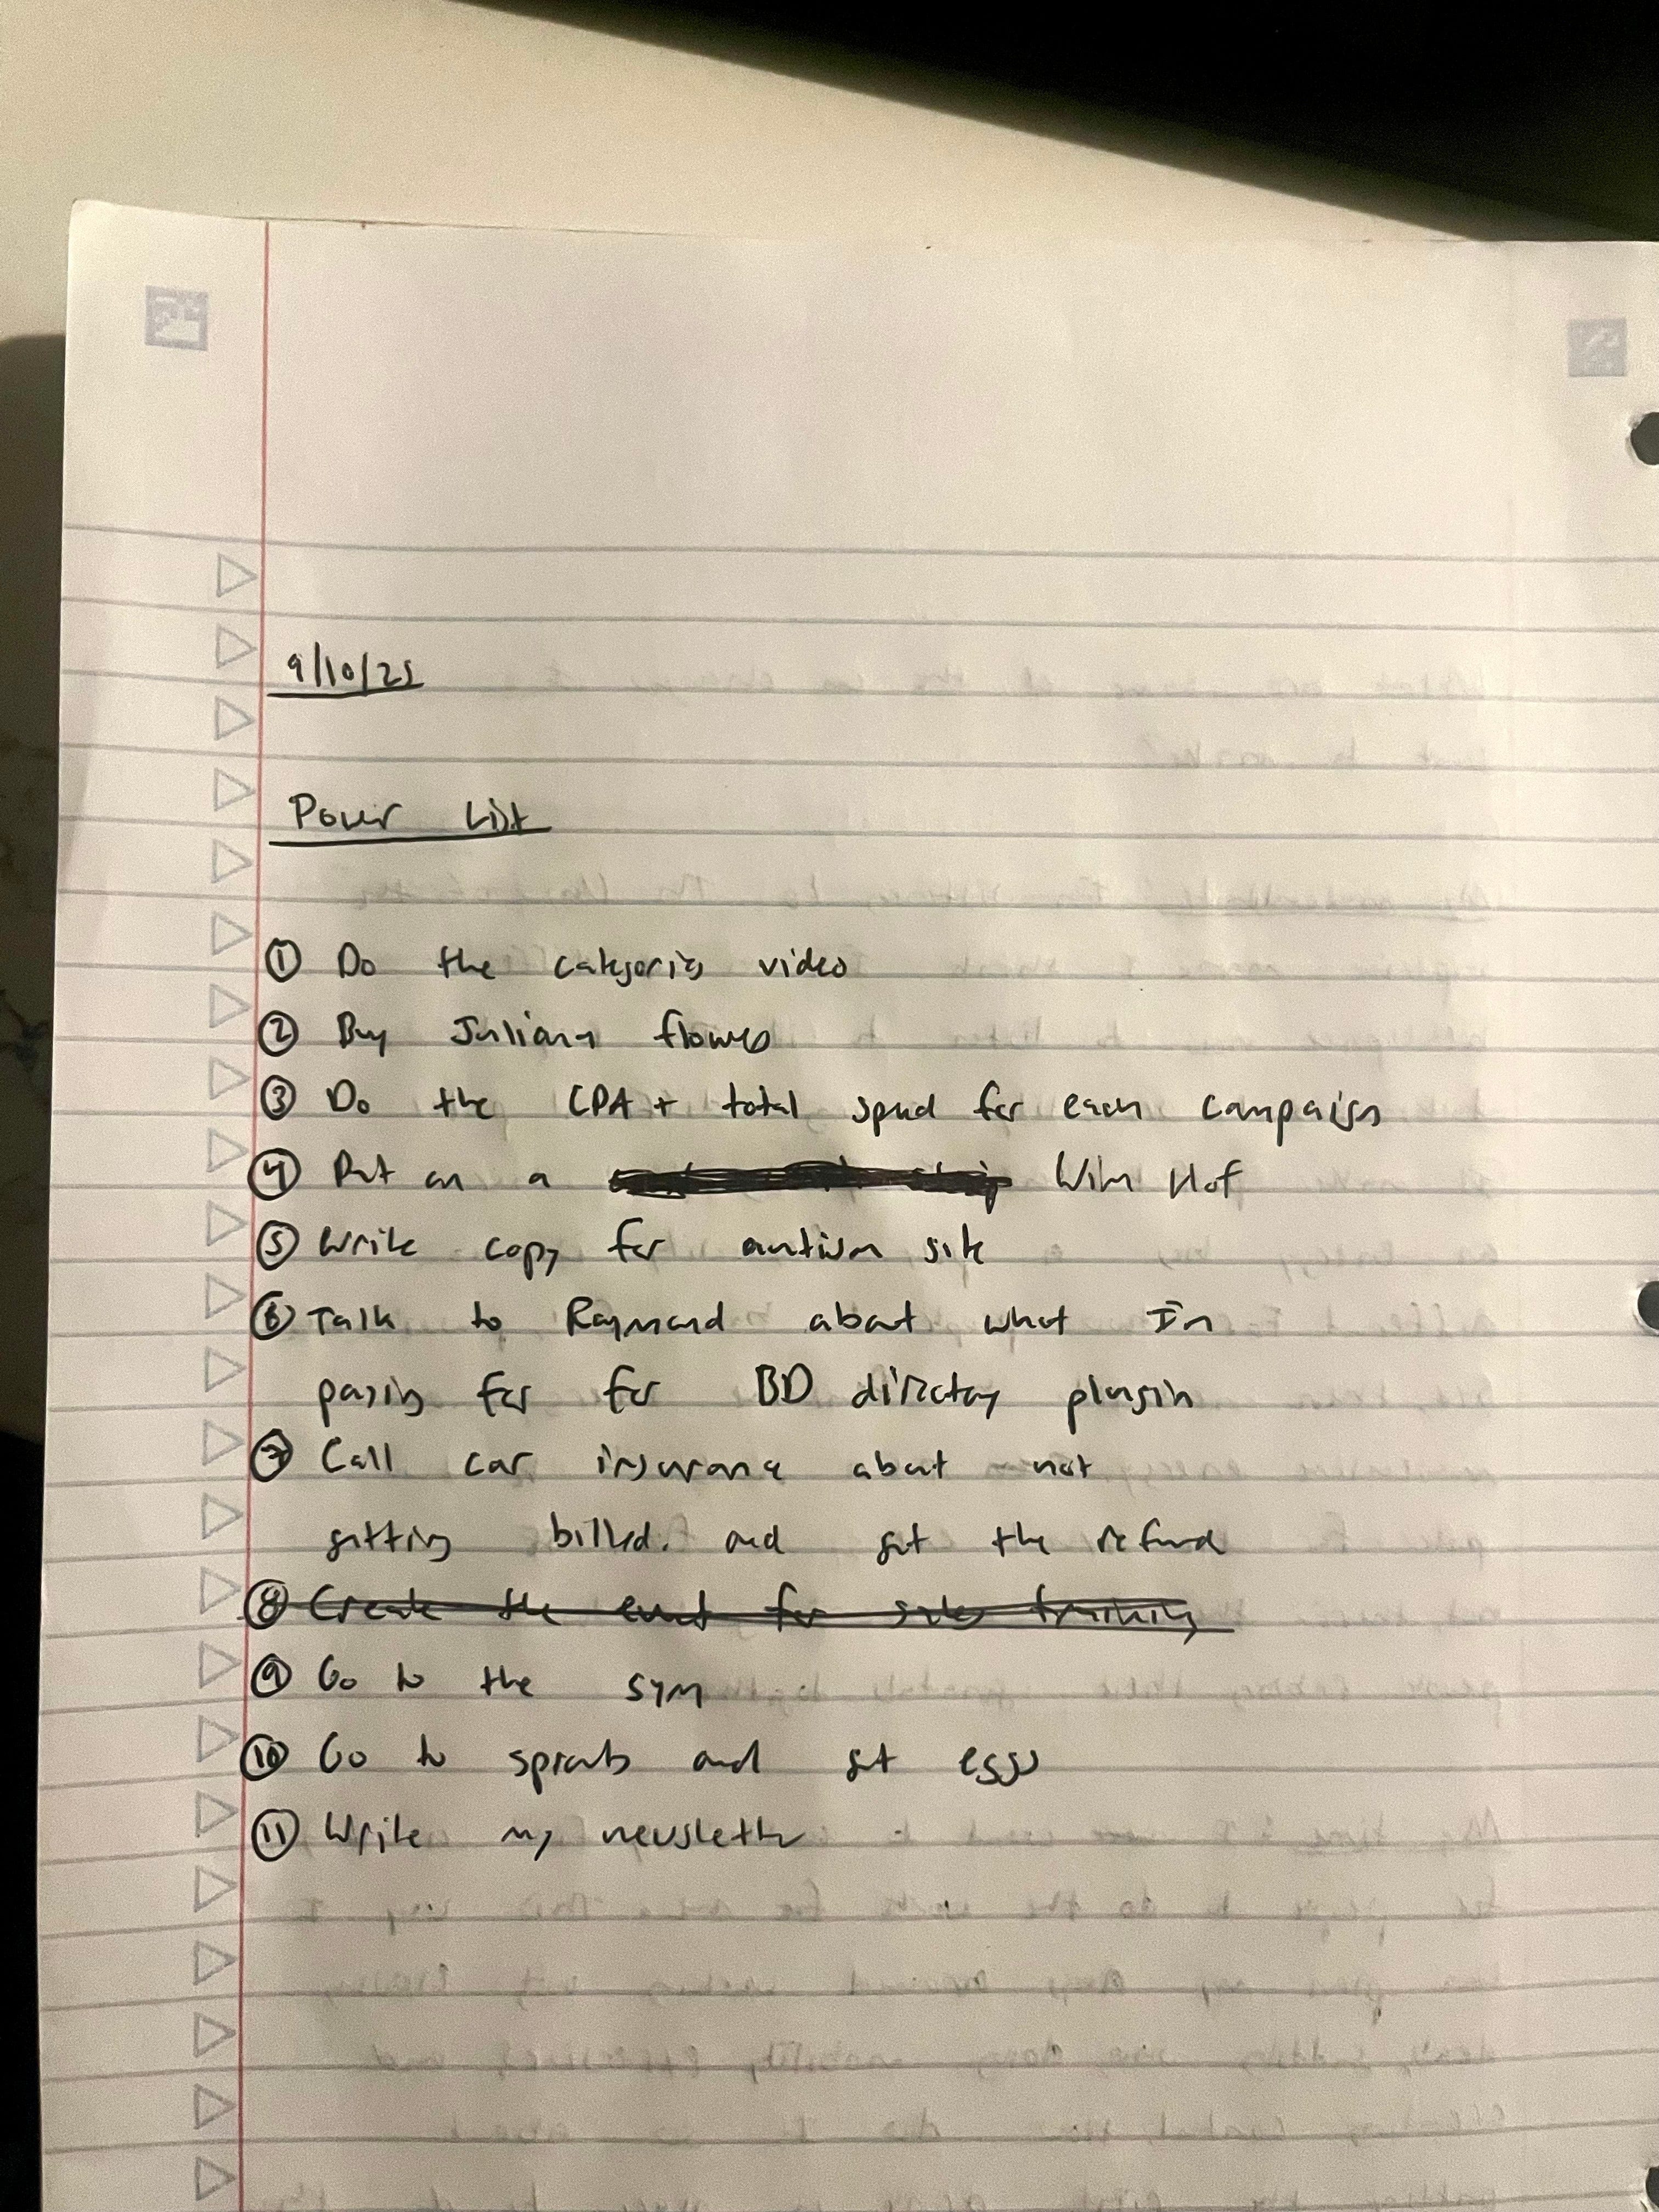 9/10/25
Power List
① Do the categories video
② Buy Juliana flowers
③ Do the CPA + total spend for each campaign
④ Put on a Wim Hof
⑤ Write copy for autism site
⑥ Talk to Raymond about what I'm
paying for for BD directory plugin
⑦ Call car insurance about not
getting billed. and get the refund
⑧ Create the event for sales training
⑨ Go to the gym
⑩ Go to sprouts and get eggs
⑪ Write my newsletter